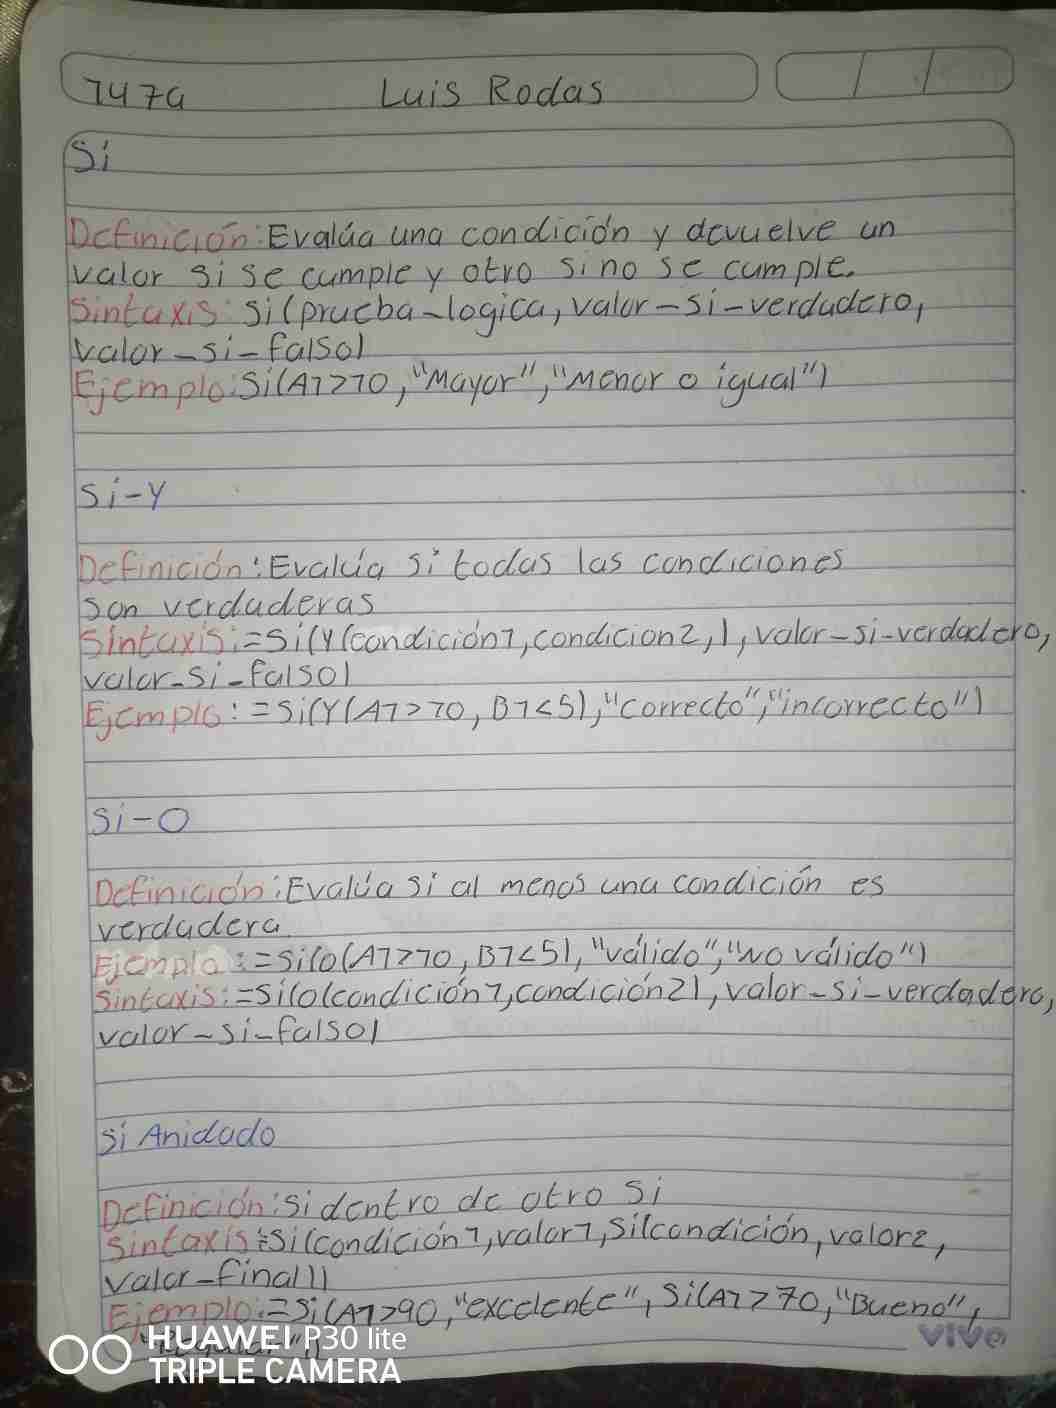 1479 Luis Rodas
/ /
Si
Definición: Evalúa una condición y devuelve un
valor si se cumple y otro si no se cumple.
Sintaxis: Si(prueba-logica, valor-si-verdadero,
valor-si-falso)
Ejemplo: Si(A1>10, "Mayor", "Menor o igual")
Si-Y
Definición: Evalúa si todas las condiciones
son verdaderas
Sintaxis: =Si(Y(condición1, condicion2,), valor-si-verdadero,
valor-si-falso)
Ejemplo: =Si(Y(A1>10, B1<5), "correcto", "incorrecto")
Si-O
Definición: Evalúa si al menos una condición es
verdadera
Ejemplo: =Si(o(A1>10, B1<5), "válido", "No válido")
Sintaxis: =Si(o(condición1, condición2), valor-si-verdadero,
valor-si-falso)
Si Anidado
Definición: Si dentro de otro Si
Sintaxis: =Si(condición1, valor1, Si(condición, valor2,
valor-final))
Ejemplo: =Si(A1>90, "excelente", Si(A1>70, "Bueno",
"Regular"))
vivo
HUAWEI P30 lite
TRIPLE CAMERA